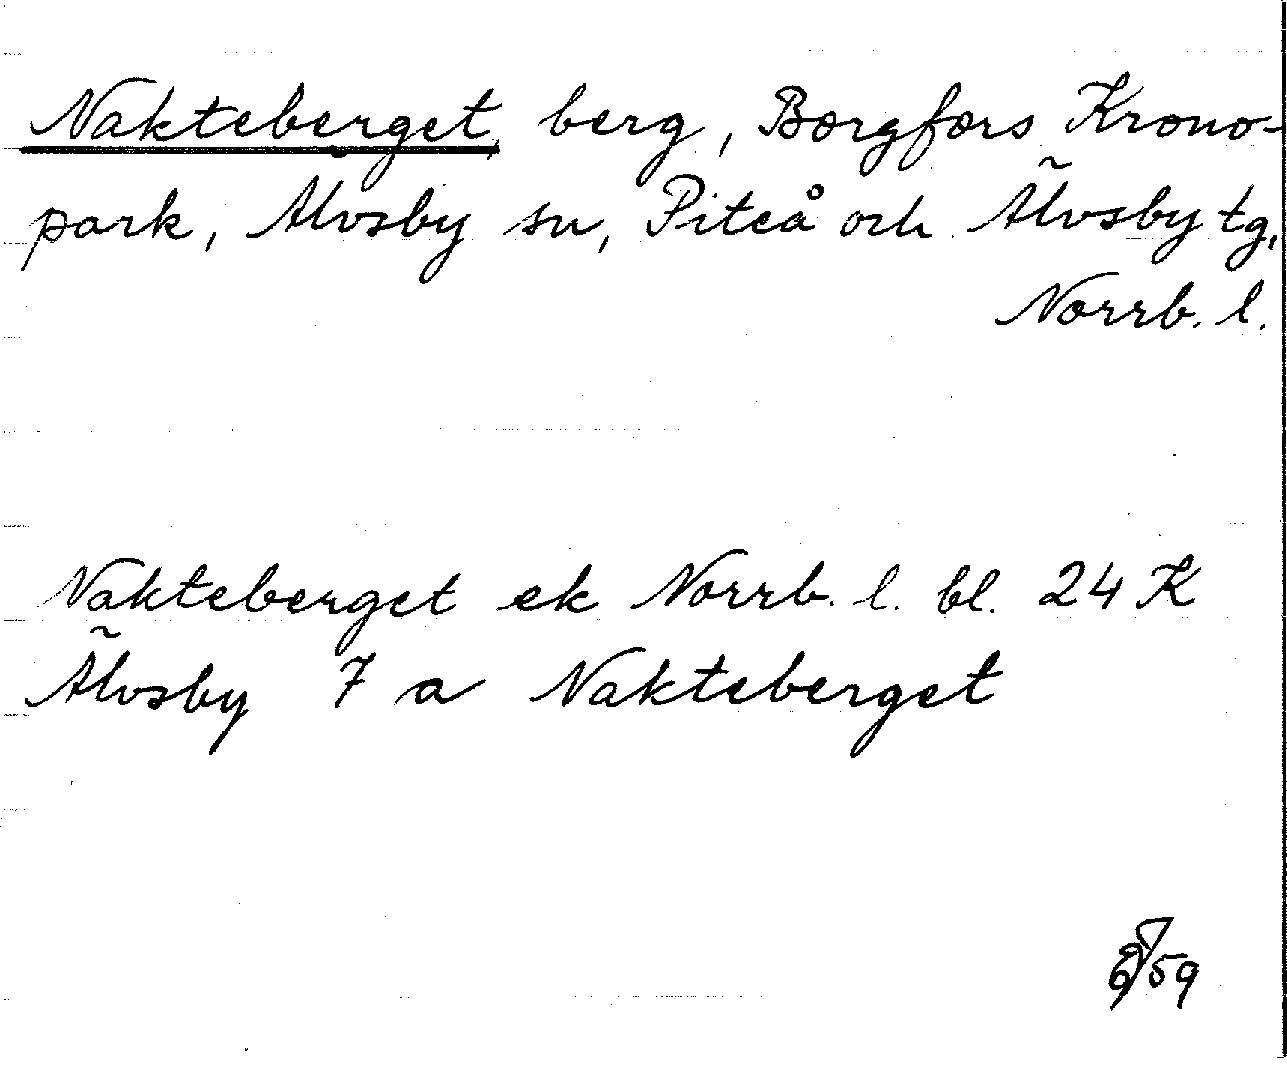 Nakteberget, berg, Borgfors Krono-
park, Älvsby sn, Piteå och Älvsby tg,
Norrb. l.
Nakteberget ek Norrb. l. bl. 24 K
Älvsby 7 a Nakteberget
59